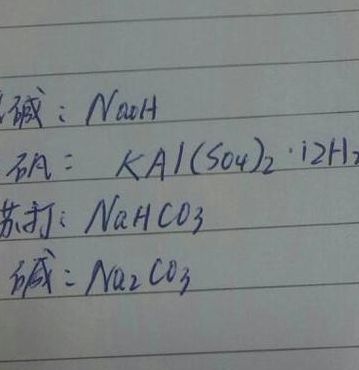 碱：NaOH
矾：KAl(SO4)2·12H2
苏打：NaHCO3
碱：Na2CO3